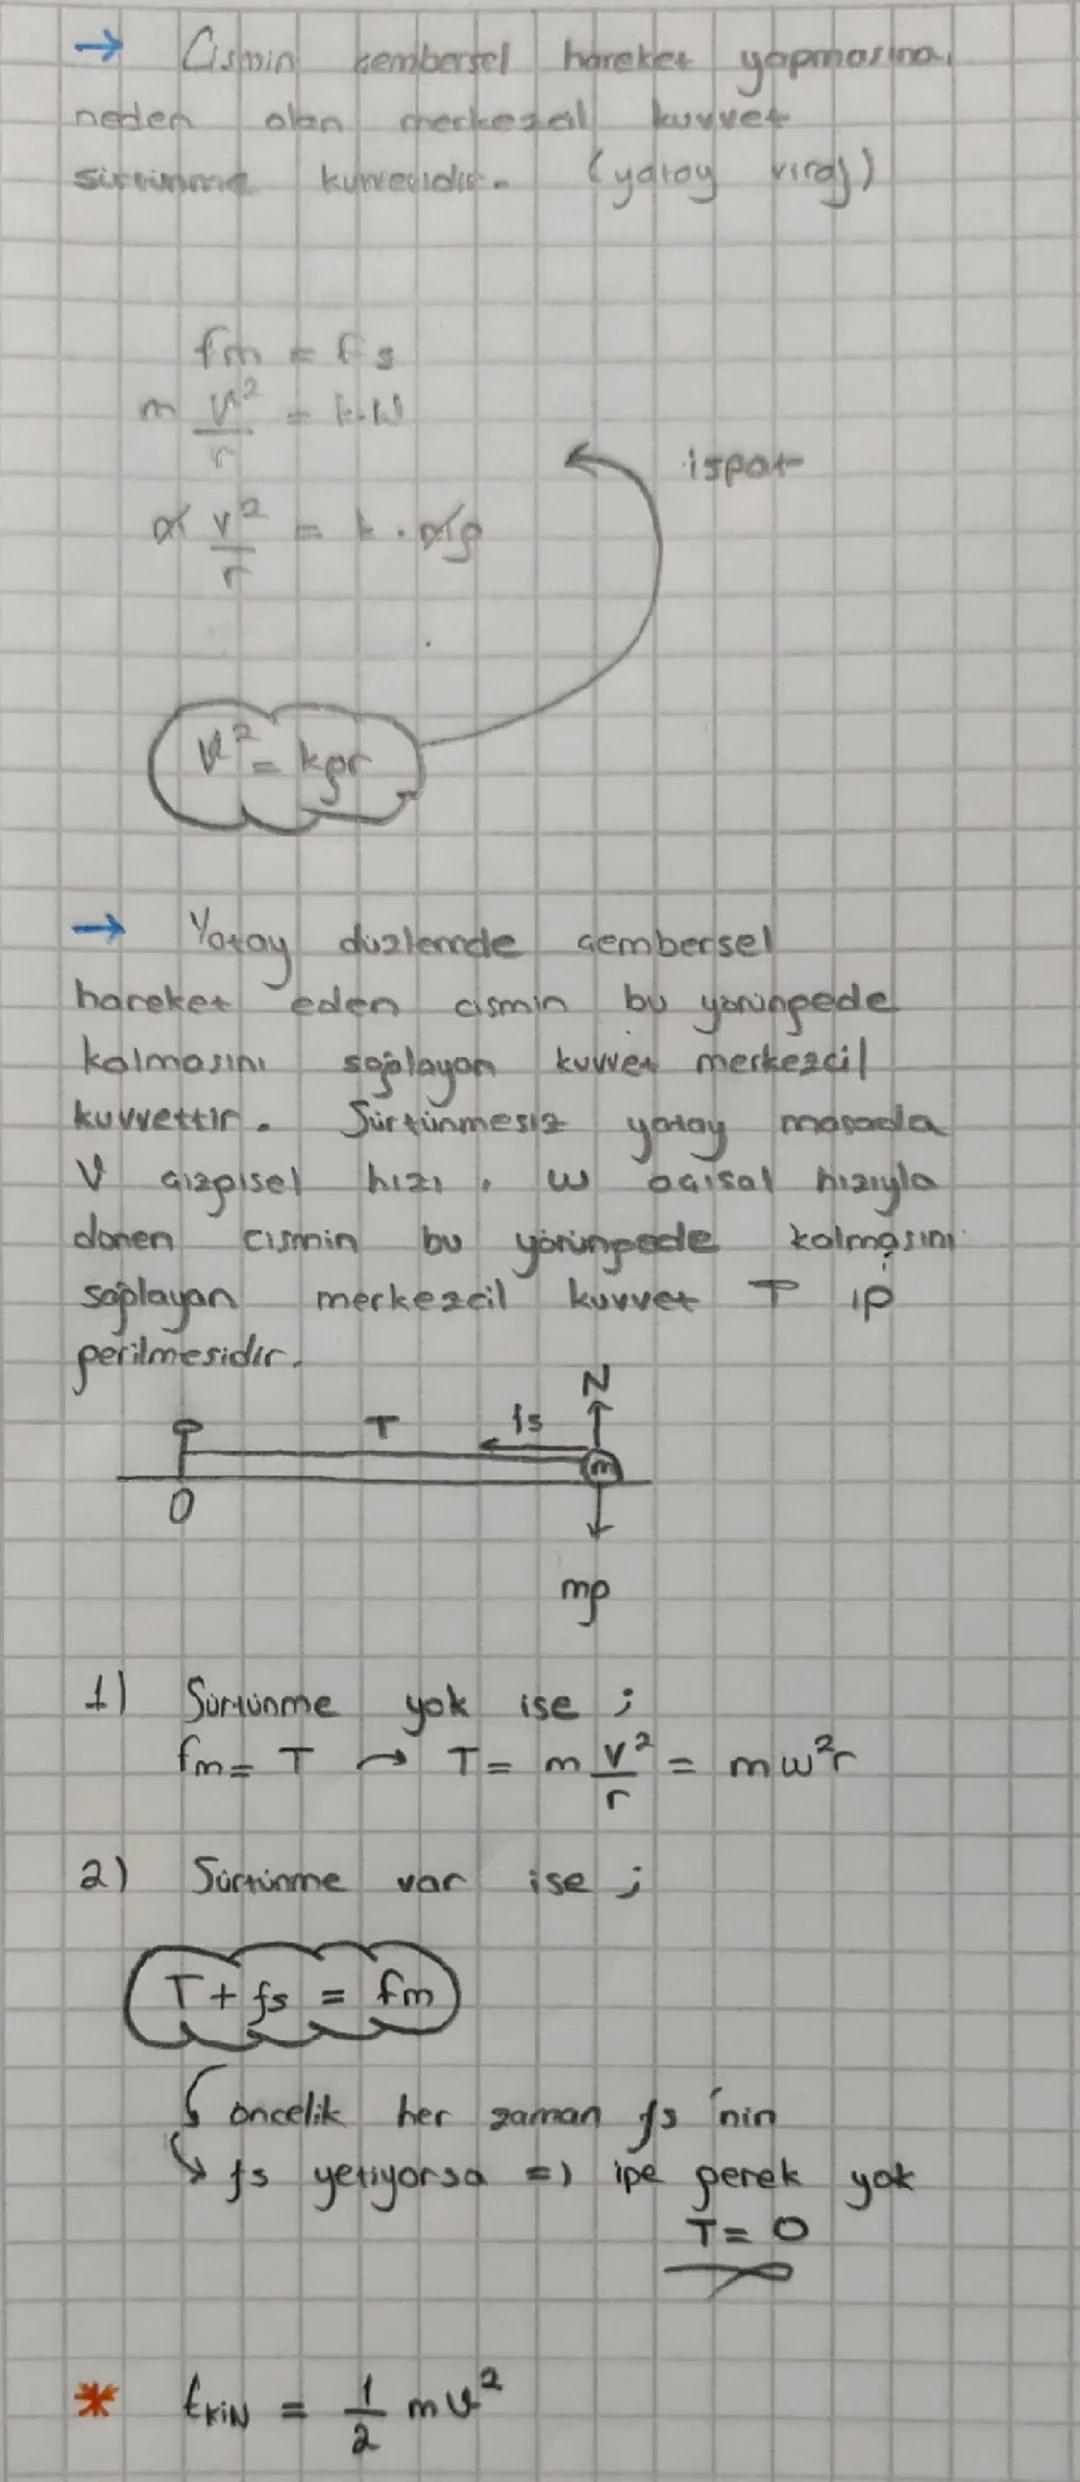 → Cismin çembersel hareket yapmasına
neden olan merkezcil kuvvet
sürtünme kuvvetidir. (yatay viraj)
fm = fs
m v²/r = k.N
m v²/r = k . mg
ispat
v² = kgr
→ Yatay düzlemde çembersel
hareket eden cismin bu yörüngede
kalmasını sağlayan kuvvet merkezcil
kuvvettir. Sürtünmesiz yatay masada
V çizgisel hızı, w açısal hızıyla
dönen cismin bu yörüngede kalmasını
sağlayan merkezcil kuvvet T ip
gerilmesidir.
N
T fs
m
O
mg
1) Sürtünme yok ise ;
fm = T → T = m v²/r = mw²r
2) Sürtünme var ise ;
T + fs = fm
öncelik her zaman fs 'nin
fs yetiyorsa => ipe gerek yok
T = 0
* EKİN = 1/2 mv²